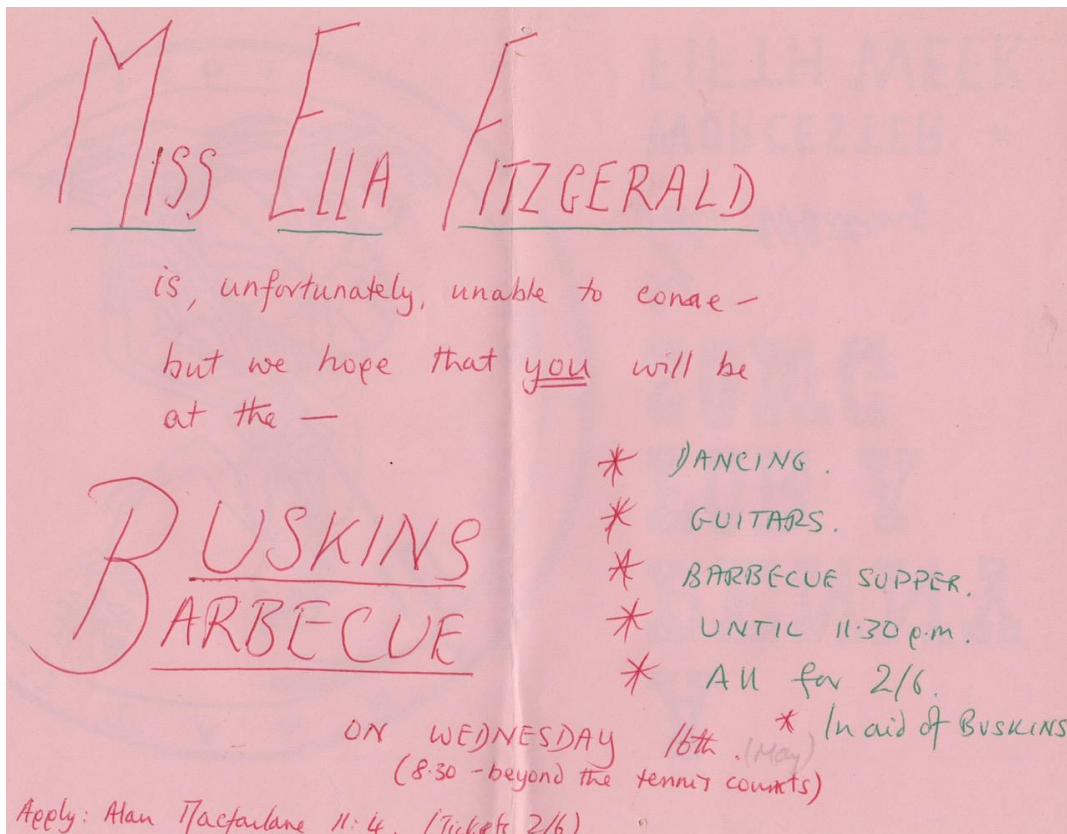 MISS ELLA FITZGERALD
is, unfortunately, unable to come –
but we hope that you will be
at the —
BUSKINS
BARBECUE
* DANCING.
* GUITARS.
* BARBECUE SUPPER.
* UNTIL 11.30 p.m.
* All for 2/6.
* In aid of BUSKINS
ON WEDNESDAY 16th. (May)
(8.30 – beyond the tennis courts)
Apply: Alan Macfarlane 11:4. (Tickets 2/6)
FIFTH WEEK
WORCESTER *